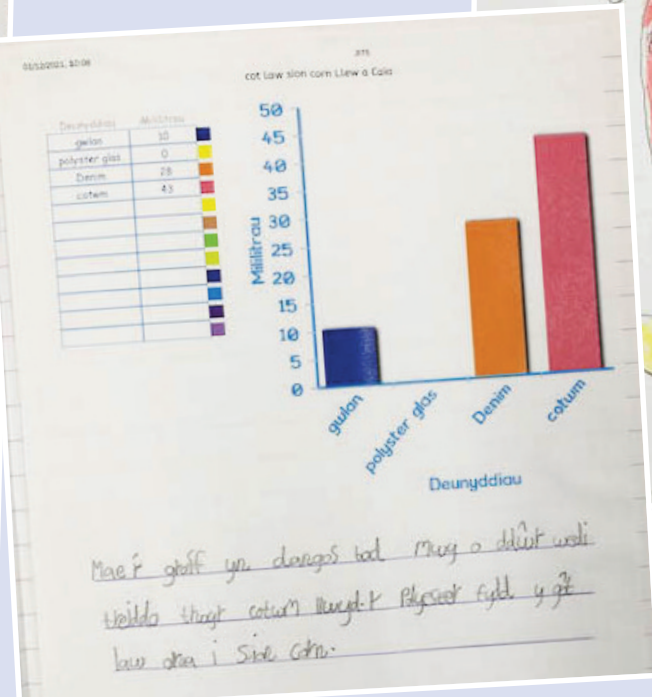 03/12/2021, 10:06
JIT5
cot law sion corn Llew a Caia
Deunyddiau Mililitrau
gwlan 10
polyster glas 0
Denim 28
cotwm 43
50
45
40
35
30
25
20
15
10
5
0
Mililitrau
gwlan
polyster glas
Denim
cotwm
Deunyddiau
Mae'r graff yn dangos bod mwy o ddŵr wedi
cotwm
law i Siôn corn.